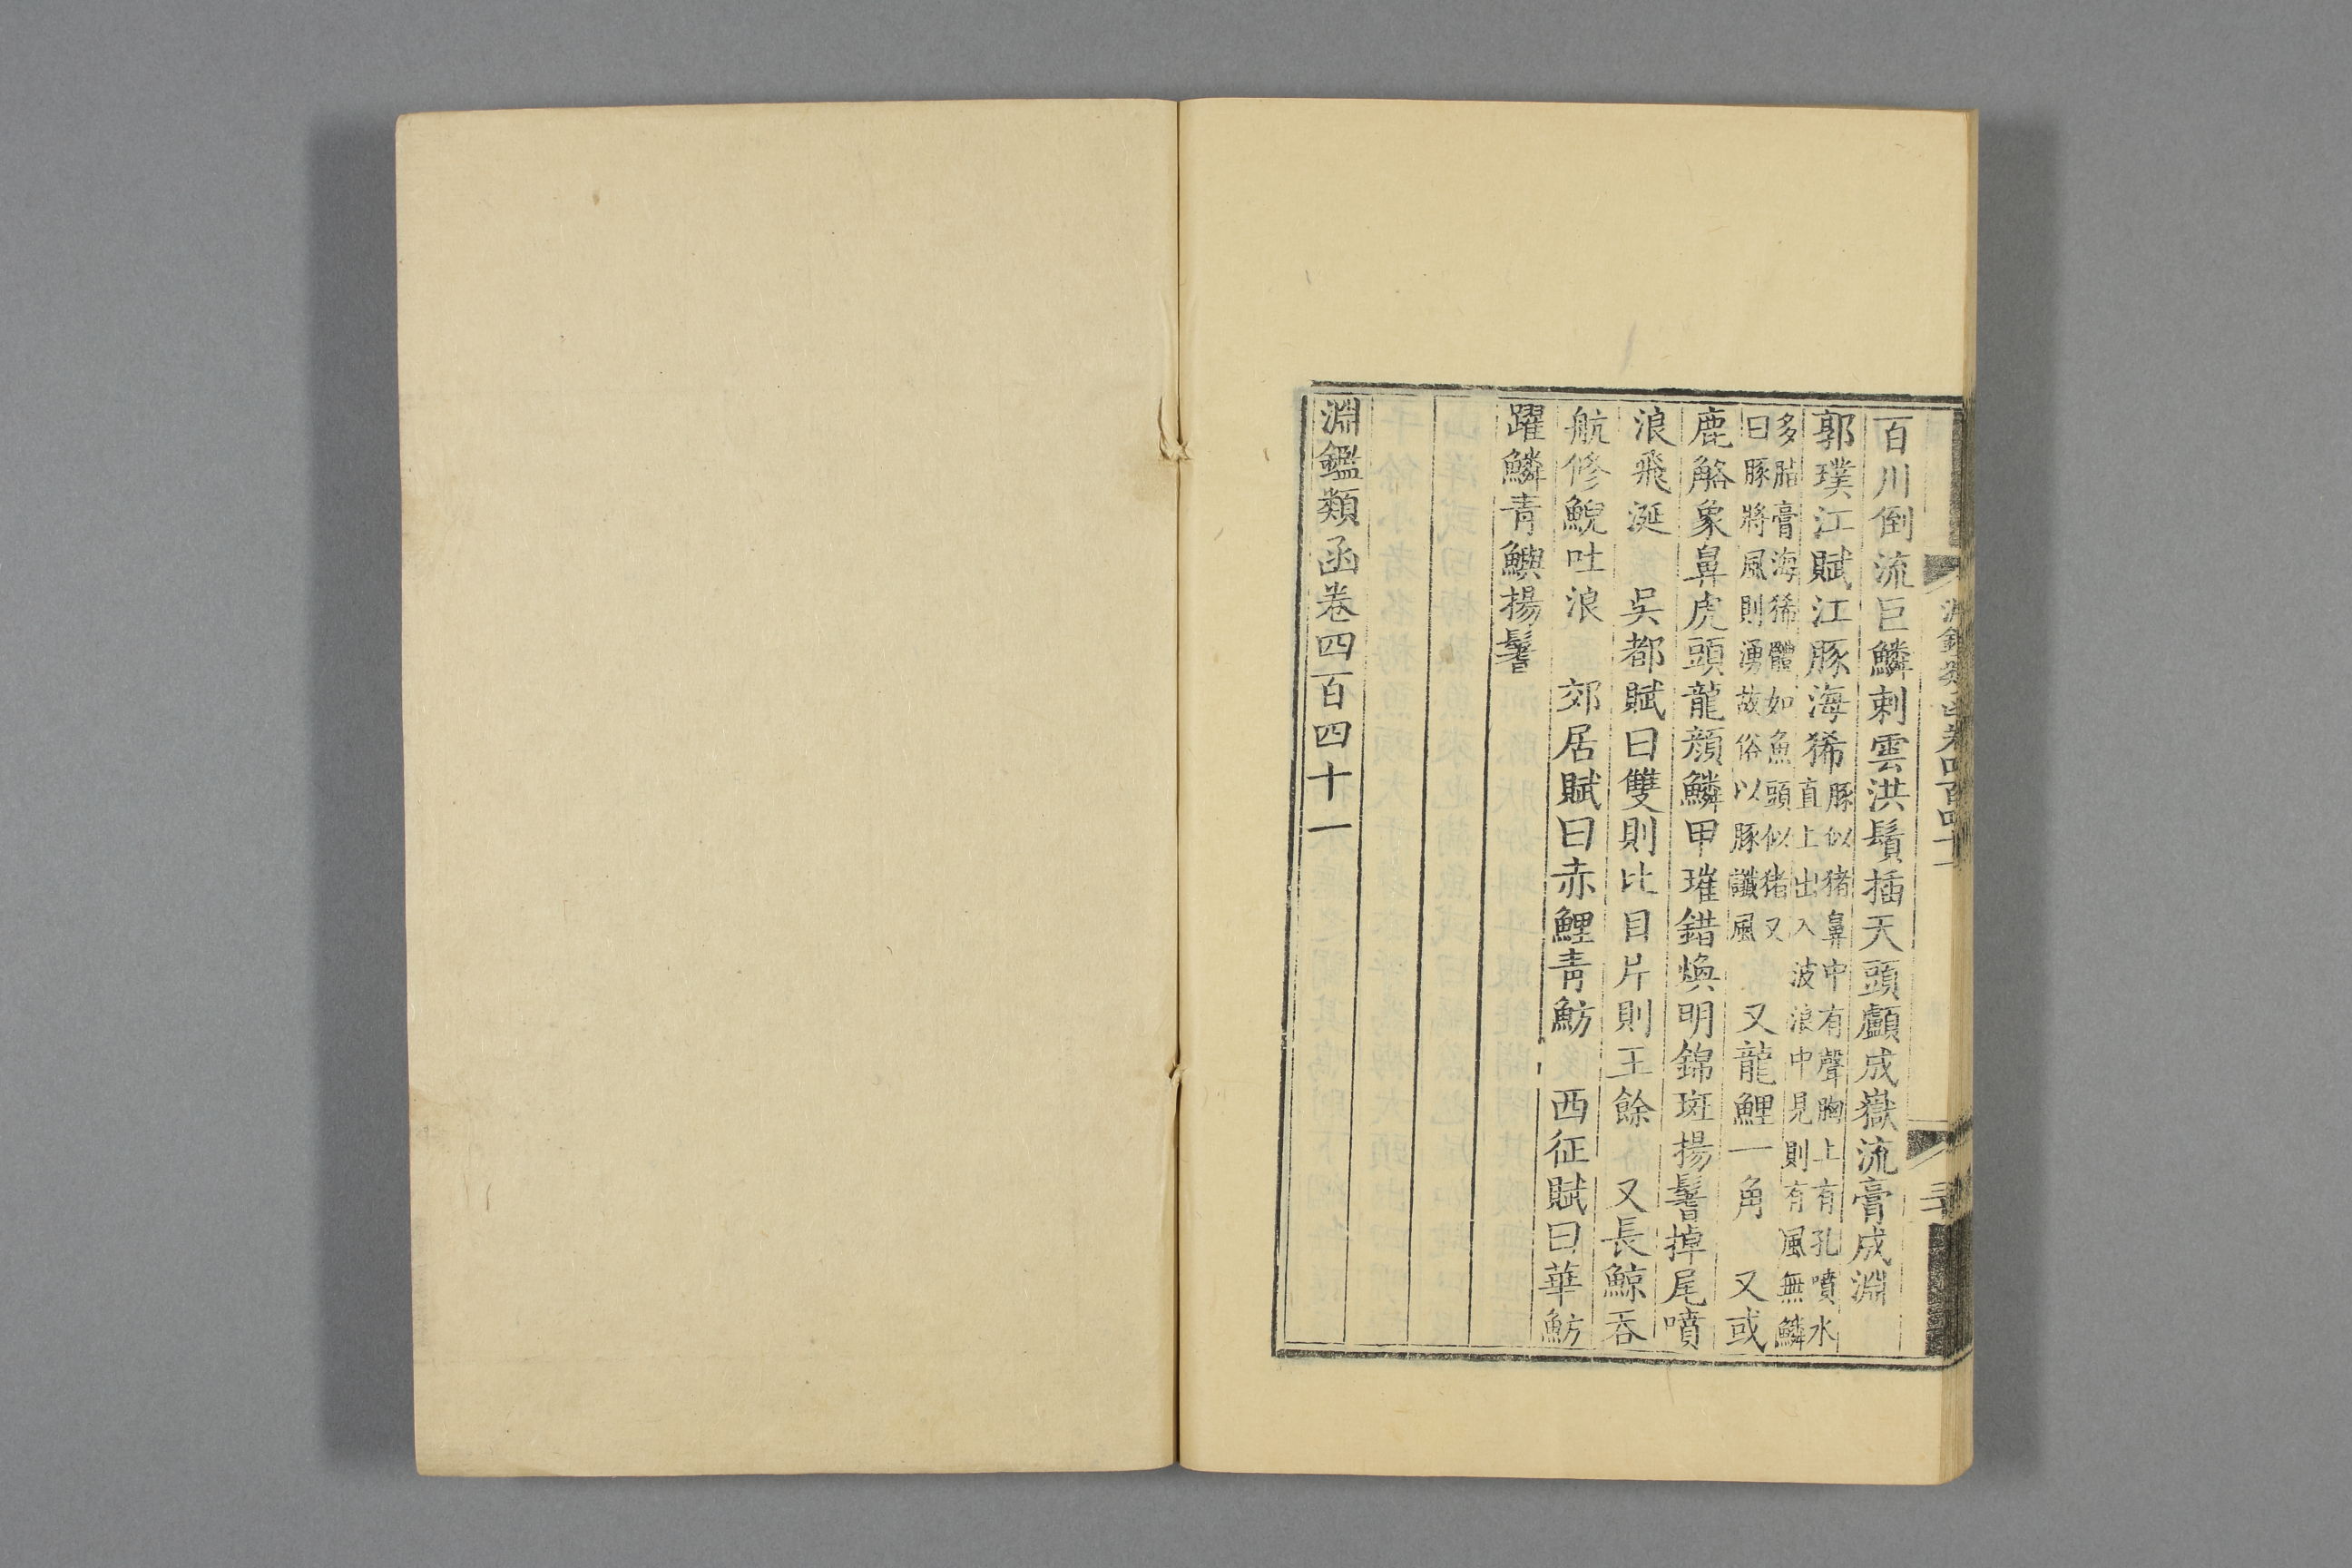 淵鑑類函卷四百四十一
百川倒流巨鱗刺雲洪鬚插天頭顱成嶽流膏成淵
郭璞江賦江豚海狶豚似猪鼻中有聲胸上有孔噴水
直上出入波浪中見則有風無鱗
多腊膏海狶體如魚頭似猪又
曰豚將風則湧故俗以豚讖風　又龍鯉一角　又或
鹿觡象鼻虎頭龍顏鱗甲璀錯煥明錦斑揚鬐掉尾噴
浪飛涎　吳都賦曰雙則比目片則王餘　又長鯨吞
航修鯢吐浪　郊居賦曰赤鯉青魴　西征賦曰華魴
躍鱗青鱮揚鬐
淵鑑類函卷四百四十一